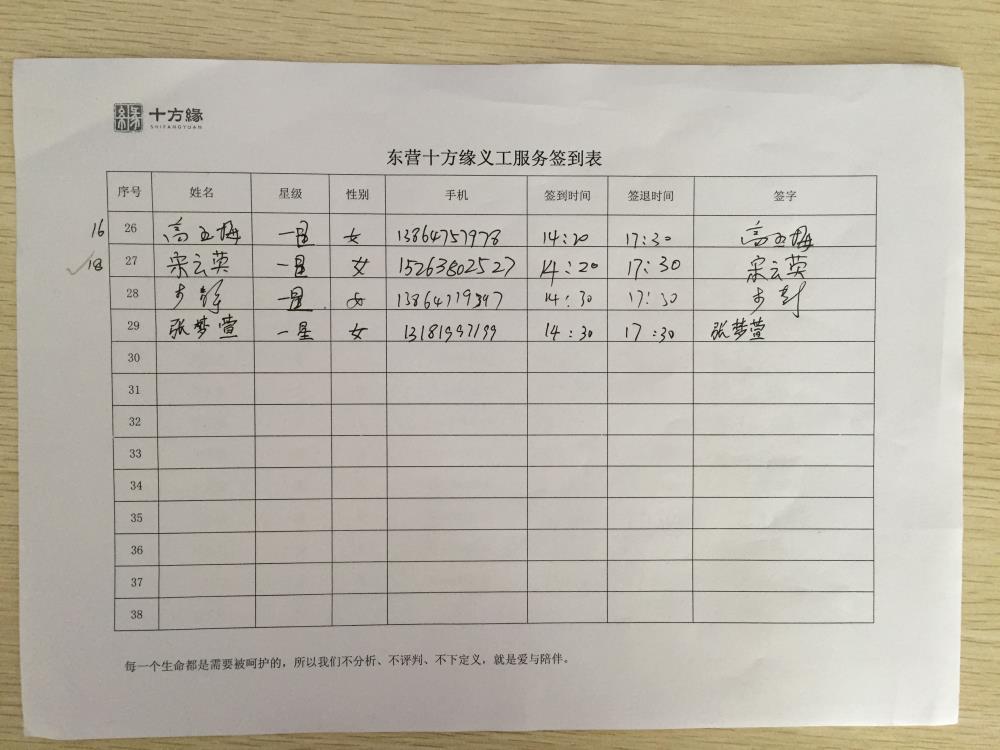 十方緣
SHIFANGYUAN
东营十方缘义工服务签到表
序号 姓名 星级 性别 手机 签到时间 签退时间 签字
16 26 高玉梅 一星 女 13864757978 14:20 17:30 高玉梅
18 27 宋云英 一星 女 15263802527 14:20 17:30 宋云英
28 一星 女 14:30 17:30
29 张梦萱 一星 女 13181997199 14:30 17:30 张梦萱
30
31
32
33
34
35
36
37
38
每一个生命都是需要被呵护的，所以我们不分析、不评判、不下定义，就是爱与陪伴。